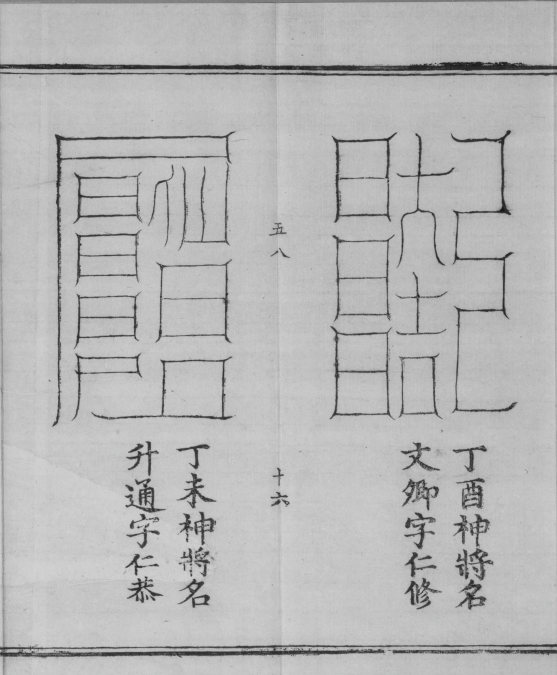 丁酉神將名
文卿字仁修
五八
十六
丁未神將名
升通字仁恭